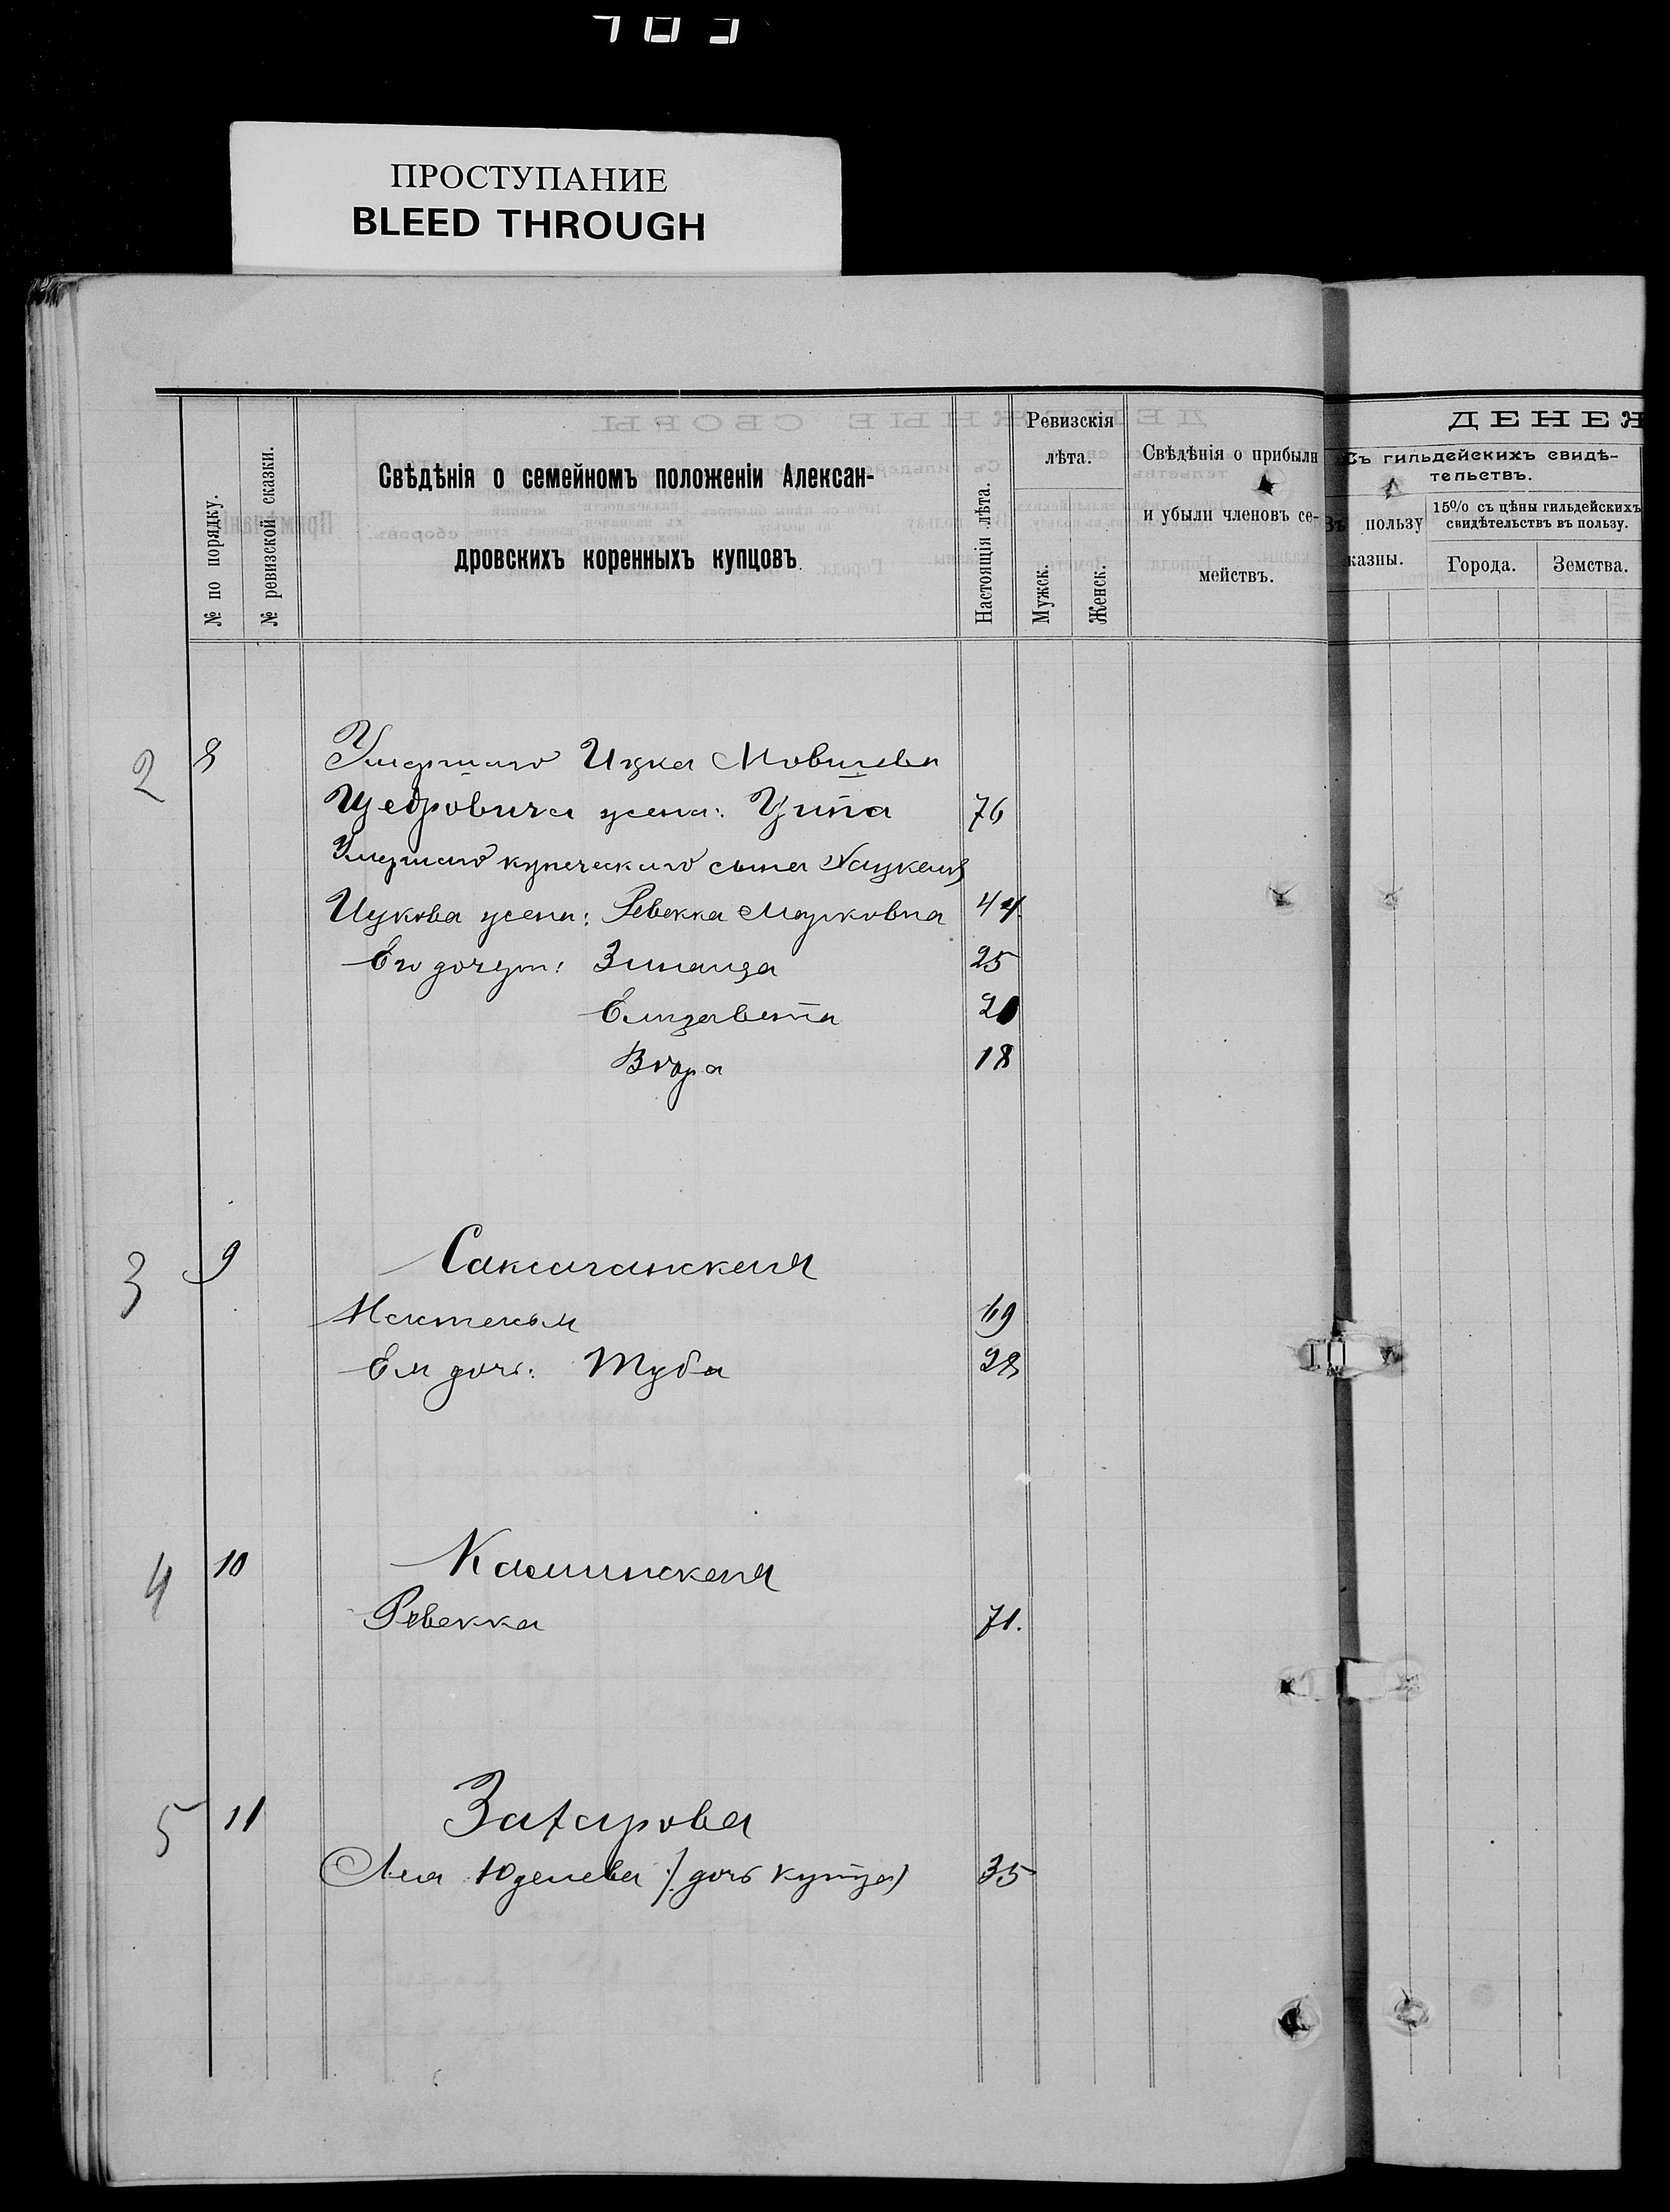 ПРОСТУПАНИЕ
BLEED THROUGH
№ по порядку.
№ ревизской сказки.
Свѣдѣнія о семейномъ положеніи Алексан-
дровскихъ коренныхъ купцовъ
Настоящія лѣта.
Ревизскія
лѣта.
Мужск.
Женск.
Свѣдѣнія о прибыли
и убыли членовъ се-
мействъ.
ДЕНЕЖ
Съ гильдейскихъ свидѣ-
тельствъ.
Въ пользу
казны.
15% съ цѣны гильдейскихъ
свидѣтельствъ въ пользу.
Города.
Земства.
2 8 Умершаго Ицка Мовшева
Щедровича жена: Ципа 76
Умершаго купеческаго сына
Ицкова жена: Ревекка Марковна 44
Его дочери: Зинаида 25
Елизавета 20
Вѣра 18
3 9 Саксаганская
69
Ея дочь: Туба 28
4 10 Каминская
Ревекка 71.
5 11 Захарова
Лея Юделева (дочь купца) 35